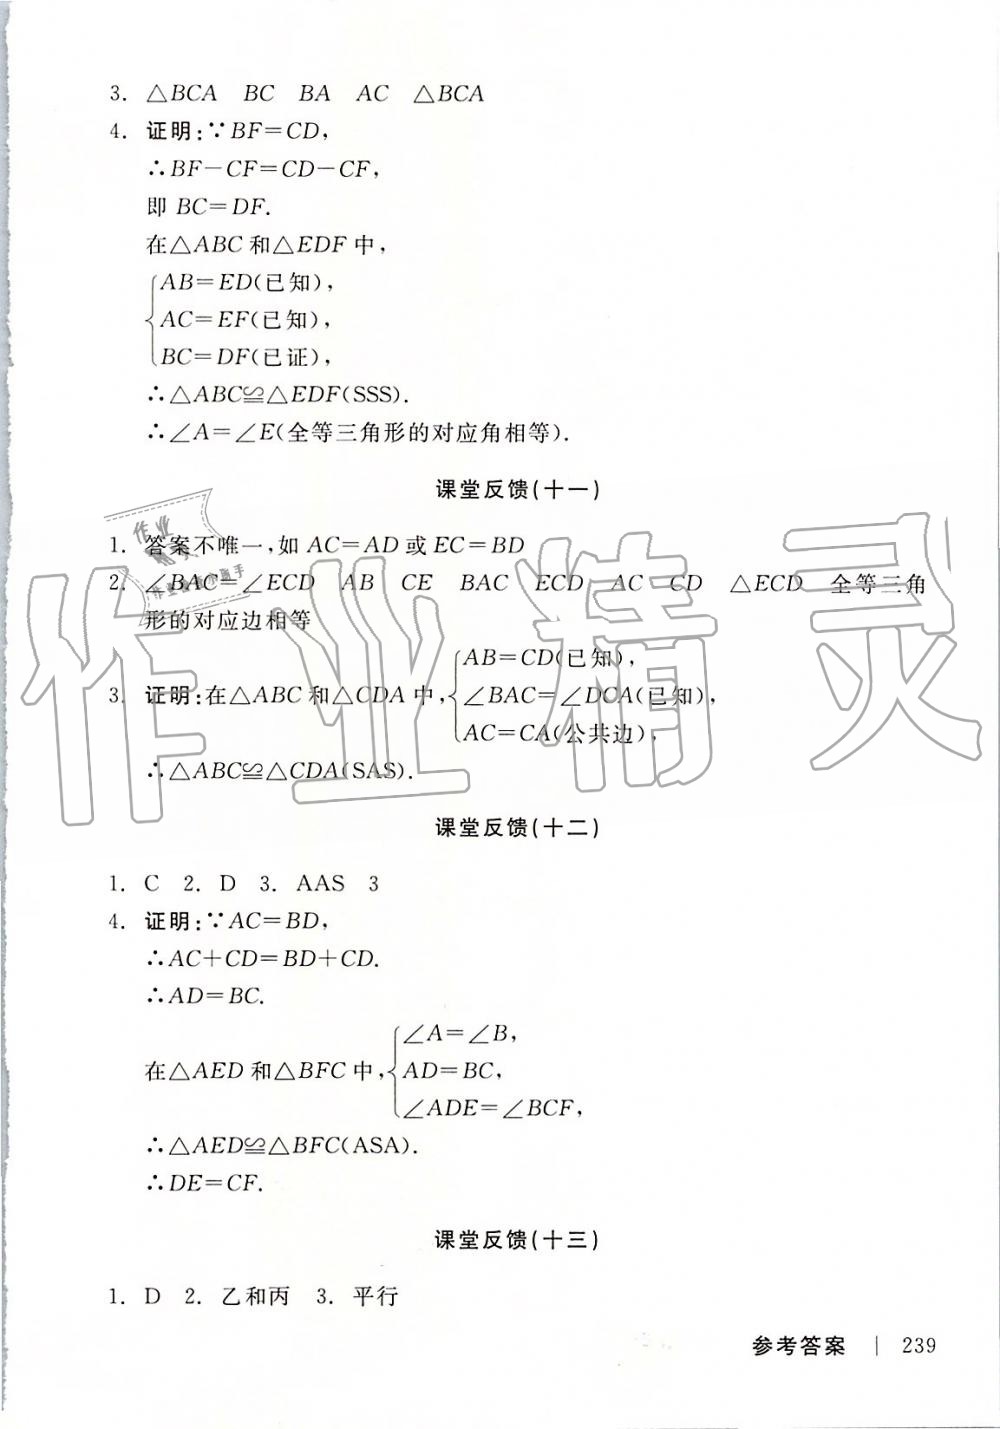 3. △BCA BC BA AC △BCA
4. 证明:∵BF=CD,
∴BF-CF=CD-CF,
即 BC=DF.
在△ABC和△EDF中,
AB=ED(已知),
AC=EF(已知),
BC=DF(已证),
∴△ABC≌△EDF(SSS).
∴∠A=∠E(全等三角形的对应角相等).
课堂反馈(十一)
1. 答案不唯一,如 AC=AD 或 EC=BD
2. ∠BAC=∠ECD AB CE BAC ECD AC CD △ECD 全等三角
形的对应边相等
3. 证明:在△ABC和△CDA中,
AB=CD(已知),
∠BAC=∠DCA(已知),
AC=CA(公共边),
∴△ABC≌△CDA(SAS).
课堂反馈(十二)
1. C 2. D 3. AAS 3
4. 证明:∵AC=BD,
∴AC+CD=BD+CD.
∴AD=BC.
在△AED和△BFC中,
∠A=∠B,
AD=BC,
∠ADE=∠BCF,
∴△AED≌△BFC(ASA).
∴DE=CF.
课堂反馈(十三)
1. D 2. 乙和丙 3. 平行
参考答案 | 239
作业精灵
作业